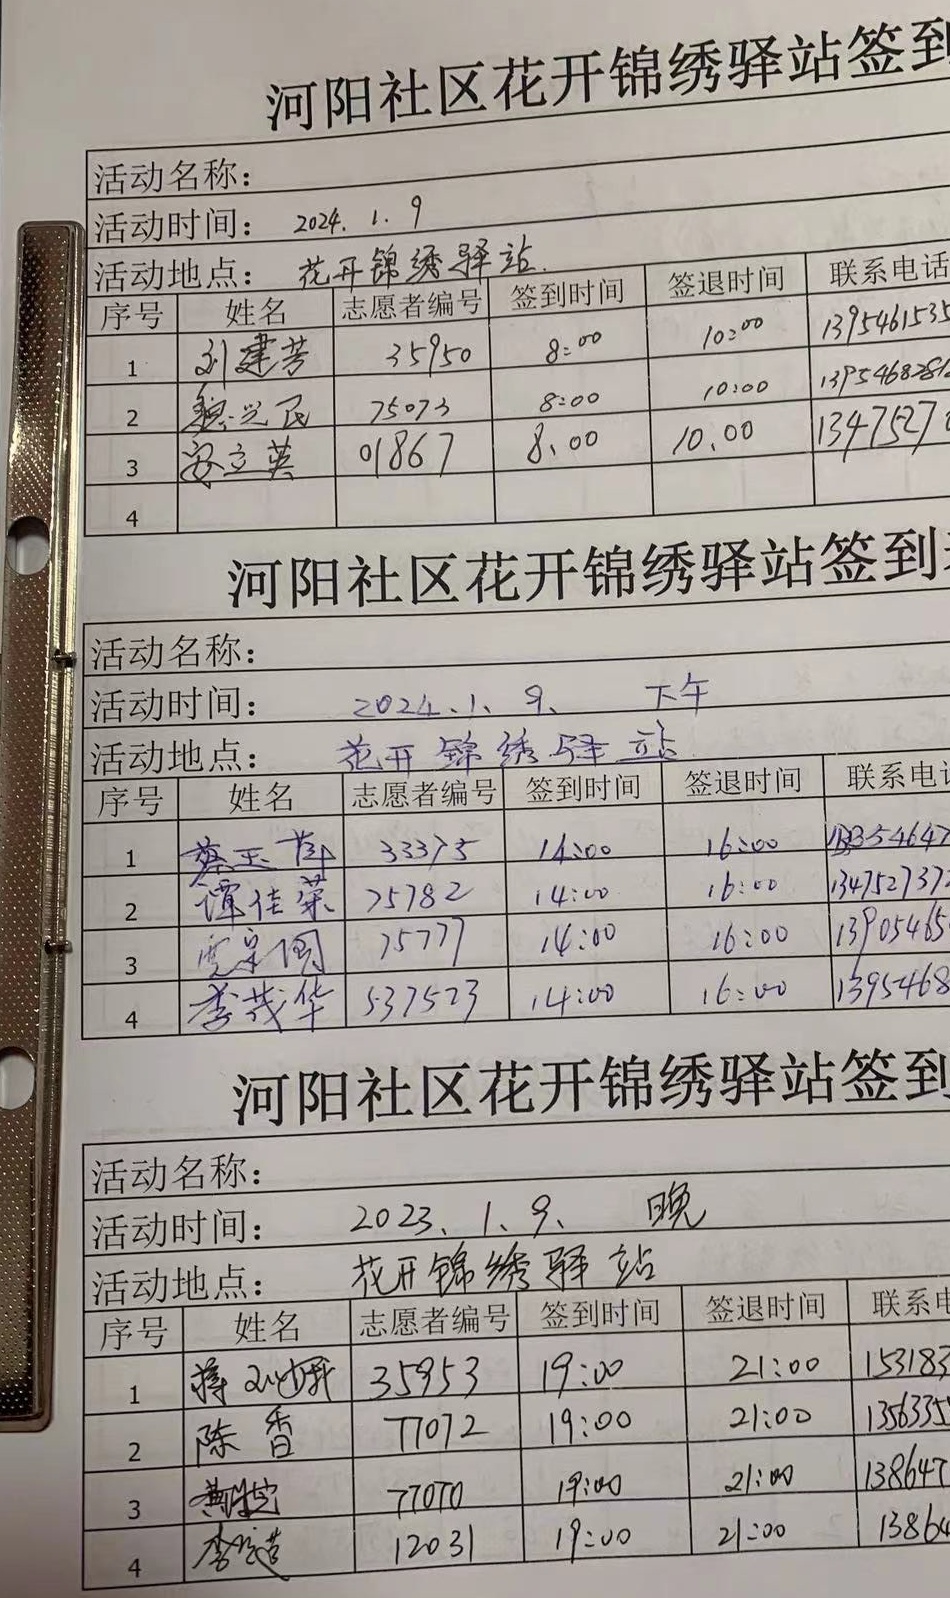 河阳社区花开锦绣驿站签到
活动名称：
活动时间： 2024. 1. 9
活动地点： 花开锦绣驿站.
序号 姓名 志愿者编号 签到时间 签退时间 联系电话
1 刘建芳 35950 8:00 10:00 1395461535
2 魏兰民 75073 8:00 10:00 139546828
3 安立英 01867 8.00 10.00 1347527
4
河阳社区花开锦绣驿站签到
活动名称：
活动时间： 2024.1.9. 下午
活动地点： 花开锦绣驿站.
序号 姓名 志愿者编号 签到时间 签退时间 联系电话
1 蔡玉 33375 14:00 16:00 354647
2 谭佳荣 75782 14:00 16:00 134752737
3 75777 14:00 16:00 13905465
4 李茂华 537523 14:00 16:00 1395468
河阳社区花开锦绣驿站签到
活动名称：
活动时间： 2023. 1. 9. 晚
活动地点： 花开锦绣驿站
序号 姓名 志愿者编号 签到时间 签退时间 联系电
1 蒋 35953 19:00 21:00 153183
2 陈香 77072 19:00 21:00 1356335
3 77070 19:00 21:00 138647
4 李 12031 19:00 21:00 13864